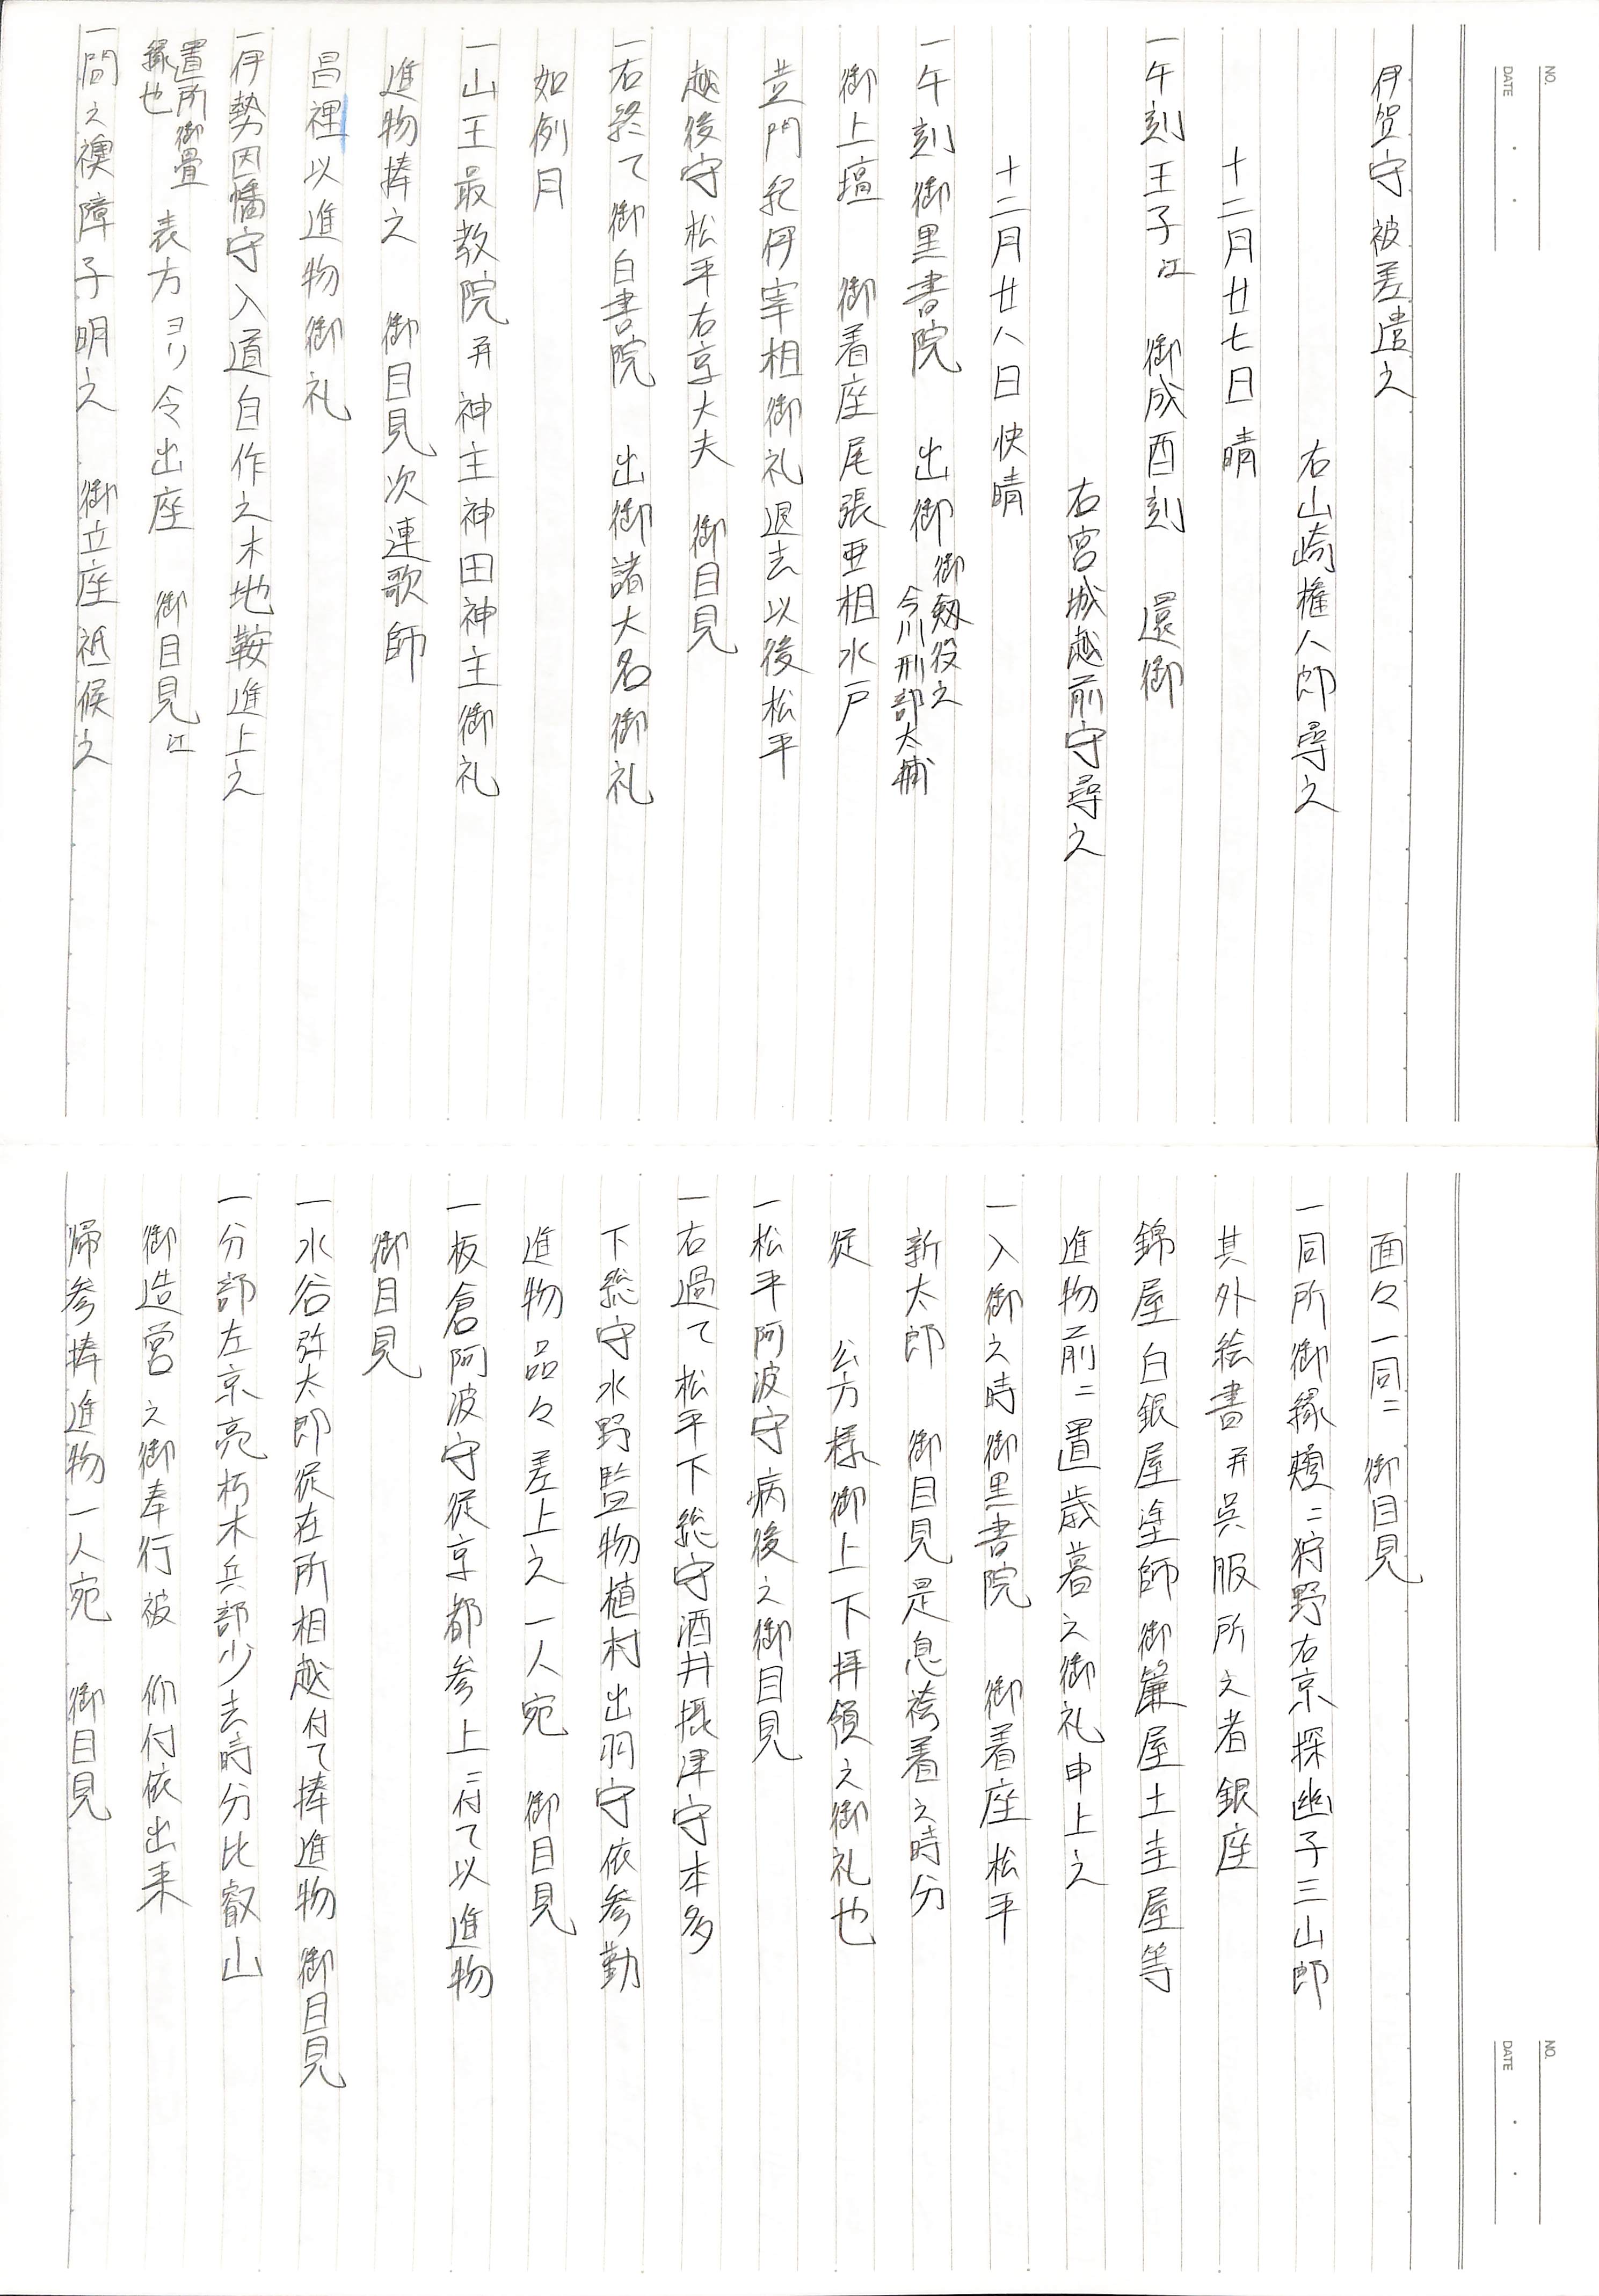 NO.
DATE
伊賀守被差遣之
右山崎権八郎尋之
十二月廿七日 晴
一午刻王子江 御成酉刻 還御
右宮城越前守尋之
十二月廿八日 快晴
一午刻御黒書院 出御 御剱役之 今川刑部太輔
御上壇 御着座尾張亜相水戸
黄門紀伊宰相御礼退去以後松平
越後守松平右京大夫 御目見
一右終て御白書院 出御諸大名御礼
如例月
一山王最教院并神主神田神主御礼
進物捧之 御目見次連歌師
昌裡以進物御礼
一伊勢因幡守入道自作之木地鞍進上之
置所御畳縁也 表方ヨリ令出座 御目見江
一間之襖障子明之 御立座祗候之
NO.
DATE
面々一同ニ 御目見
一同所御縁頬ニ狩野右京探幽子三山郎
其外絵書并呉服所之者銀座
錦屋白銀屋塗師御簾屋土圭屋等
進物前ニ置歳暮之御礼申上之
一入御之時御黒書院 御着座松平
新太郎 御目見是息袴着之時分
従 公方様御上下拝領之御礼也
一松平阿波守病後之御目見
一右過て松平下総守酒井摂津守本多
下総守水野監物植村出羽守依参勤
進物品々差上之一人宛 御目見
一板倉阿波守従京都参上ニ付て以進物
御目見
一水谷弥太郎従在所相越付て捧進物 御目見
一分部左京亮朽木兵部少去時分比叡山
御造営之御奉行被 仰付依出来
帰参捧進物一人宛 御目見